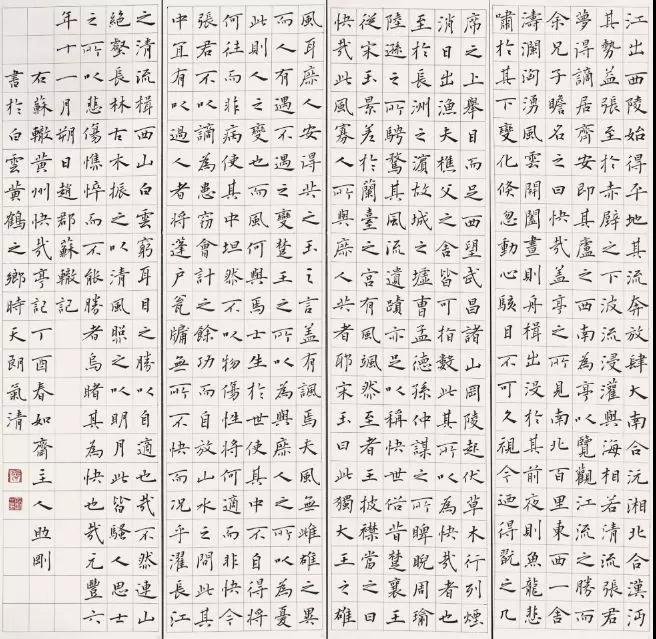 江出西陵始得平地其流奔放肆大南合沅湘北合漢沔
其勢益張至於赤壁之下波流浸灌與海相若清河張君
夢得謫居齊安即其廬之西南為亭以覽觀江流之勝而
余兄子瞻名之曰快哉蓋亭之所見南北百里東西一舍
濤瀾洶湧風雲開闔晝則舟楫出沒於其前夜則魚龍悲
嘯於其下變化倏忽動心駭目不可久視今迺得翫之几
席之上舉目而足西望武昌諸山岡陵起伏草木行列煙
消日出漁夫樵父之舍皆可指數此其所以為快哉者也
至於長洲之濱故城之墟曹孟德孫仲謀之所睥睨周瑜
陸遜之所騁騖其風流遺蹟亦足以稱快世俗昔楚襄王
從宋玉景差於蘭臺之宮有風颯然至者王披襟當之曰
快哉此風寡人所與庶人共者耶宋玉曰此獨大王之雄
風耳庶人安得共之玉之言蓋有諷焉夫風無雌雄之異
而人有遇不遇之變楚王之所以為與庶人之所以為憂
此則人之變也而風何與焉士生於世使其中不自得將
何往而非病使其中坦然不以物傷性將何適而非快今
張君不以謫為患竊會計之餘功而自放山水之間此其
中宜有以過人者將蓬戶瓮牖無所不快而況乎濯長江
之清流楫西山白雲窮耳目之勝以自適也哉不然連山
絕壑長林古木振之以清風照之以明月此皆騷人思士
之所以悲傷憔悴而不能勝者烏睹其為快也哉元豐六
年十一月朔日趙郡蘇轍記
右蘇轍黃州快哉亭記丁酉春如齋主人助剛
書於白雲黃鶴之鄉時天朗氣清